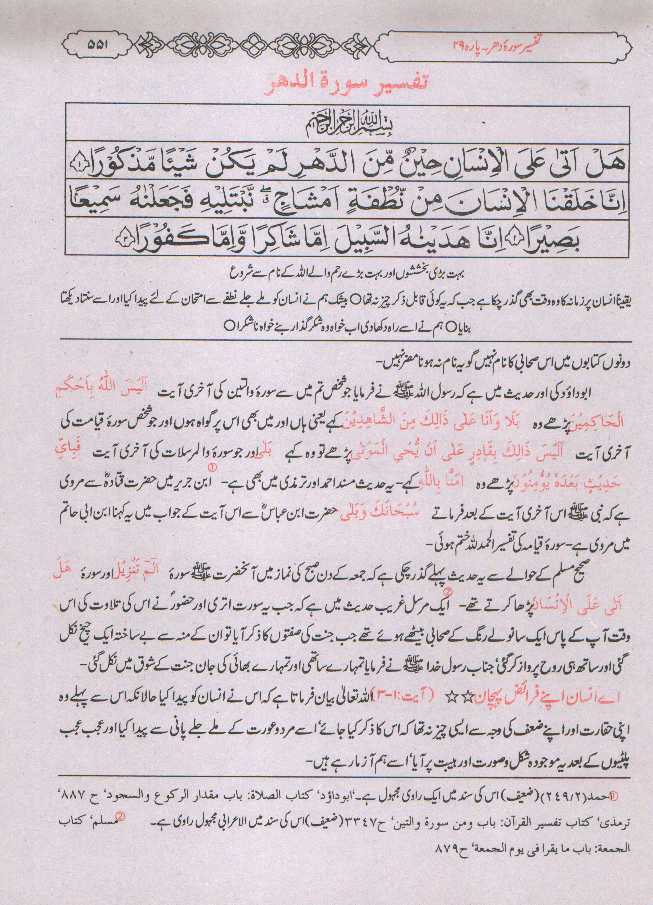 تفسیر سورۂ دھر۔ پارہ ۲۹
۵۵۱
تفسیر سورة الدھر
بِسْمِ اللّٰهِ الرَّحْمٰنِ الرَّحِيْمِ
هَلْ اَتٰى عَلَى الْاِنْسَانِ حِيْنٌ مِّنَ الدَّهْرِ لَمْ يَكُنْ شَيْئًا مَّذْكُوْرًا ﴿۱﴾
اِنَّا خَلَقْنَا الْاِنْسَانَ مِنْ نُّطْفَةٍ اَمْشَاجٍ ۖ نَّبْتَلِيْهِ فَجَعَلْنٰهُ سَمِيْعًا
بَصِيْرًا ﴿۲﴾ اِنَّا هَدَيْنٰهُ السَّبِيْلَ اِمَّا شَاكِرًا وَّاِمَّا كَفُوْرًا ﴿۳﴾
بہت بڑی بخششوں اور بہت بڑے رحم والے اللہ کے نام سے شروع
یقیناً انسان پر زمانہ کا وہ وقت بھی گذر چکا ہے جب کہ یہ کوئی قابل ذکر چیز نہ تھا ○ بیشک ہم نے انسان کو ملے جلے نطفے سے امتحان کے لئے پیدا کیا اور اسے سنتا دیکھتا
بنایا ○ ہم نے اسے راہ دکھا دی اب خواہ وہ شکر گذار بنے خواہ ناشکرا ○
دونوں کتابوں میں اس صحابی کا نام نہیں گو یہ نام نہ ہونا مضر نہیں۔
ابوداؤد کی اور حدیث میں ہے کہ رسول اللہ ﷺ نے فرمایا جو شخص تم میں سے سورۂ والتین کی آخری آیت اَلَيْسَ اللّٰهُ بِاَحْكَمِ
الْحَاكِمِيْنَ پڑھے وہ بَلَا وَاَنَا عَلٰى ذَالِكَ مِنَ الشَّاهِدِيْنَ کہے یعنی ہاں اور میں بھی اس پر گواہ ہوں اور جو شخص سورۂ قیامت کی
آخری آیت اَلَيْسَ ذَالِكَ بِقَادِرٍ عَلٰى اَنْ يُّحْيِ الْمَوْتٰى پڑھے تو وہ کہے بَلٰى اور جو سورۂ والمرسلات کی آخری آیت فَبِاَيِّ
حَدِيْثٍ بَعْدَهٗ يُؤْمِنُوْنَ پڑھے وہ اٰمَنَّا بِاللّٰهِ کہے۔ یہ حدیث مسند احمد اور ترمذی میں بھی ہے۔① ابن جریر میں حضرت قتادہؒ سے مروی
ہے کہ نبی ﷺ اس آخری آیت کے بعد فرماتے سُبْحَانَكَ وَبَلٰى حضرت ابن عباسؓ سے اس آیت کے جواب میں یہ کہنا ابن ابی حاتم
میں مروی ہے۔ سورۂ قیامہ کی تفسیر الحمد للہ ختم ہوئی۔
صحیح مسلم کے حوالے سے یہ حدیث پہلے گذر چکی ہے کہ جمعہ کے دن صبح کی نماز میں آنحضرت ﷺ سورۂ الٓمّٓ تَنْزِيْلُ اور سورۂ هَلْ
اَتٰى عَلَى الْاِنْسَانِ پڑھا کرتے تھے۔② ایک مرسل غریب حدیث میں ہے کہ جب یہ سورت اتری اور حضورؐ نے اس کی تلاوت کی اس
وقت آپ کے پاس ایک سانولے رنگ کے صحابی بیٹھے ہوئے تھے جب جنت کی صفتوں کا ذکر آیا تو ان کے منہ سے بے ساختہ ایک چیخ نکل
گئی اور ساتھ ہی روح پرواز کر گئی جناب رسول خدا ﷺ نے فرمایا تمہارے ساتھی اور تمہارے بھائی کی جان جنت کے شوق میں نکل گئی۔
اے انسان اپنے فرائض پہچان ☆☆ (آیت:۱۔۳) اللہ تعالیٰ بیان فرماتا ہے کہ اس نے انسان کو پیدا کیا حالانکہ اس سے پہلے وہ
اپنی حقارت اور اپنے ضعف کی وجہ سے ایسی چیز نہ تھا کہ اس کا ذکر کیا جائے‘ اسے مرد و عورت کے ملے جلے پانی سے پیدا کیا اور عجب عجب
پلٹیوں کے بعد یہ موجودہ شکل و صورت اور ہیبت پر آیا‘ اسے ہم آزما رہے ہیں۔
① احمد (۲/۲۴۹) (ضعیف) اس کی سند میں ایک راوی مجہول ہے۔ ‘ابوداؤد‘ کتاب الصلاة: باب مقدار الرکوع والسجود‘ ح ۸۸۷‘
ترمذی‘ کتاب تفسیر القرآن: باب ومن سورة والتین‘ ح۳۳۴۷ (ضعیف) اس کی سند میں الاعرابی مجہول راوی ہے۔ ② مسلم‘ کتاب
الجمعة: باب ما یقرا فی یوم الجمعة‘ ح ۸۷۹